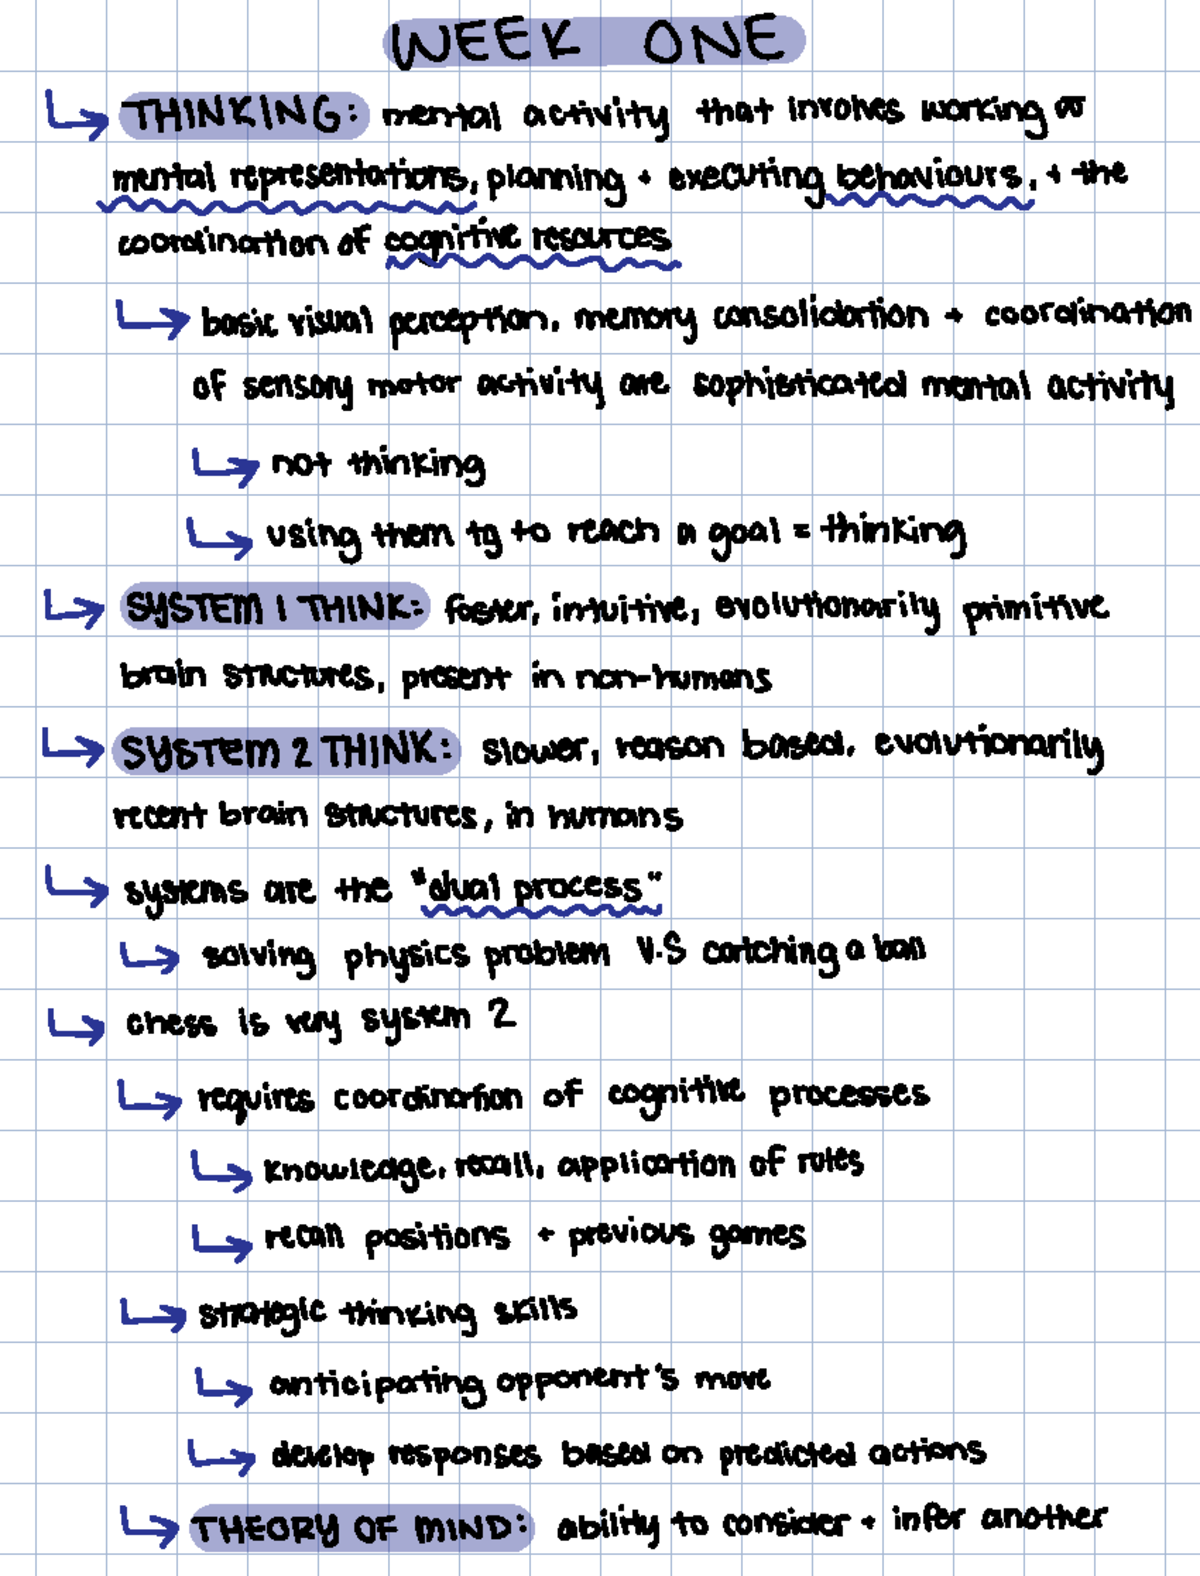 WEEK ONE
THINKING: mental activity that involves working w
mental representations, planning + executing behaviours, + the
coordination of cognitive resources
basic visual perception, memory consolidation + coordination
of sensory motor activity are sophisticated mental activity
not thinking
using them tg to reach a goal = thinking
SYSTEM 1 THINK: faster, intuitive, evolutionarily primitive
brain structures, present in non-humans
SYSTEM 2 THINK: slower, reason based, evolutionarily
recent brain structures, in humans
systems are the "dual process"
solving physics problem V.S catching a ball
chess is very system 2
requires coordination of cognitive processes
knowledge, recall, application of rules
recall positions + previous games
strategic thinking skills
anticipating opponent's move
develop responses based on predicted actions
THEORY OF MIND: ability to consider + infer another